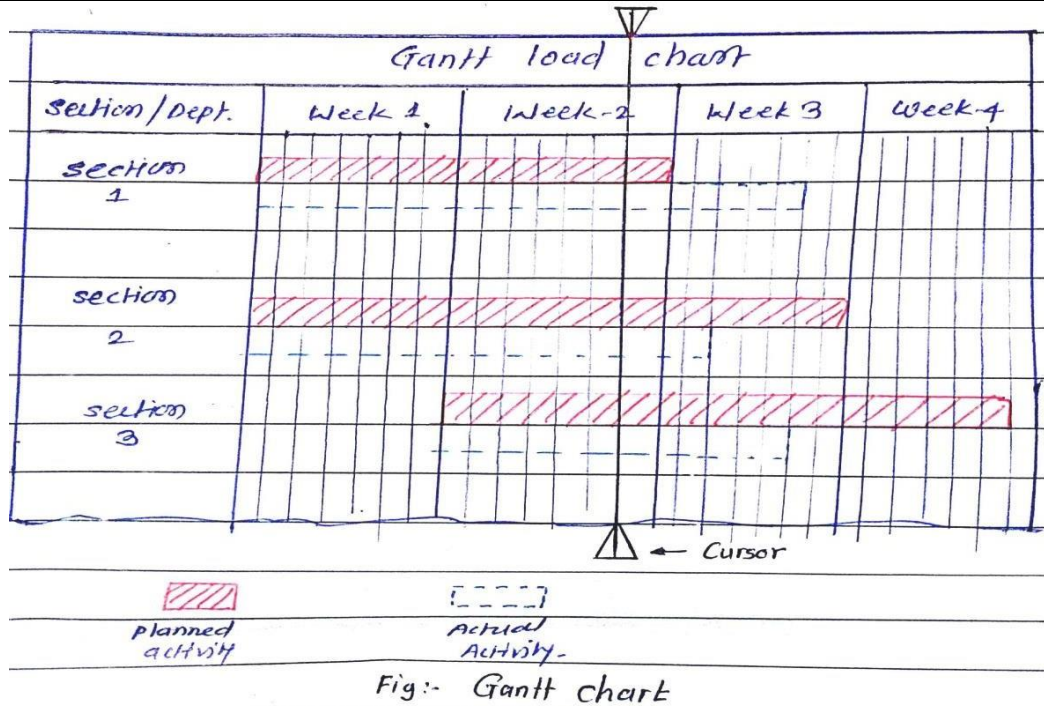 Gantt load chart
Section/Dept. Week 1. Week-2 Week 3 Week-4
section
1
section
2
section
3
← Cursor
planned Actual
activity Activity-
Fig:- Gantt chart